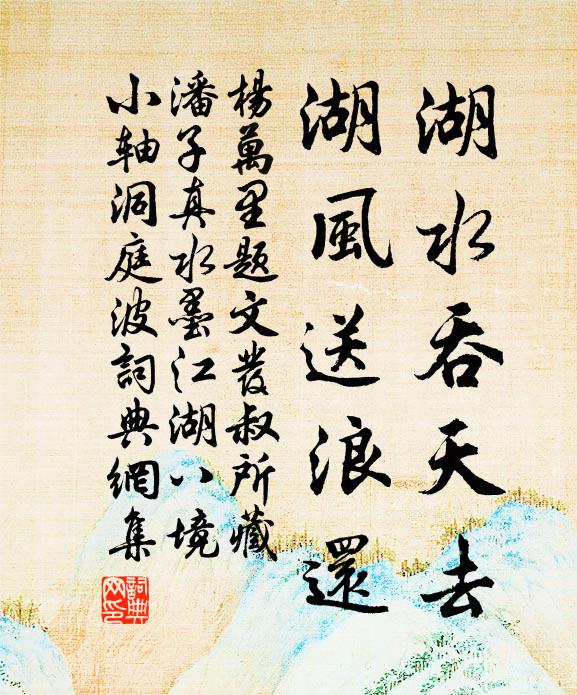 湖水吞天去
湖風送浪還
楊萬里題文發叔所藏
潘子真水墨江湖八境
小軸洞庭波詞典網集
詞典网印